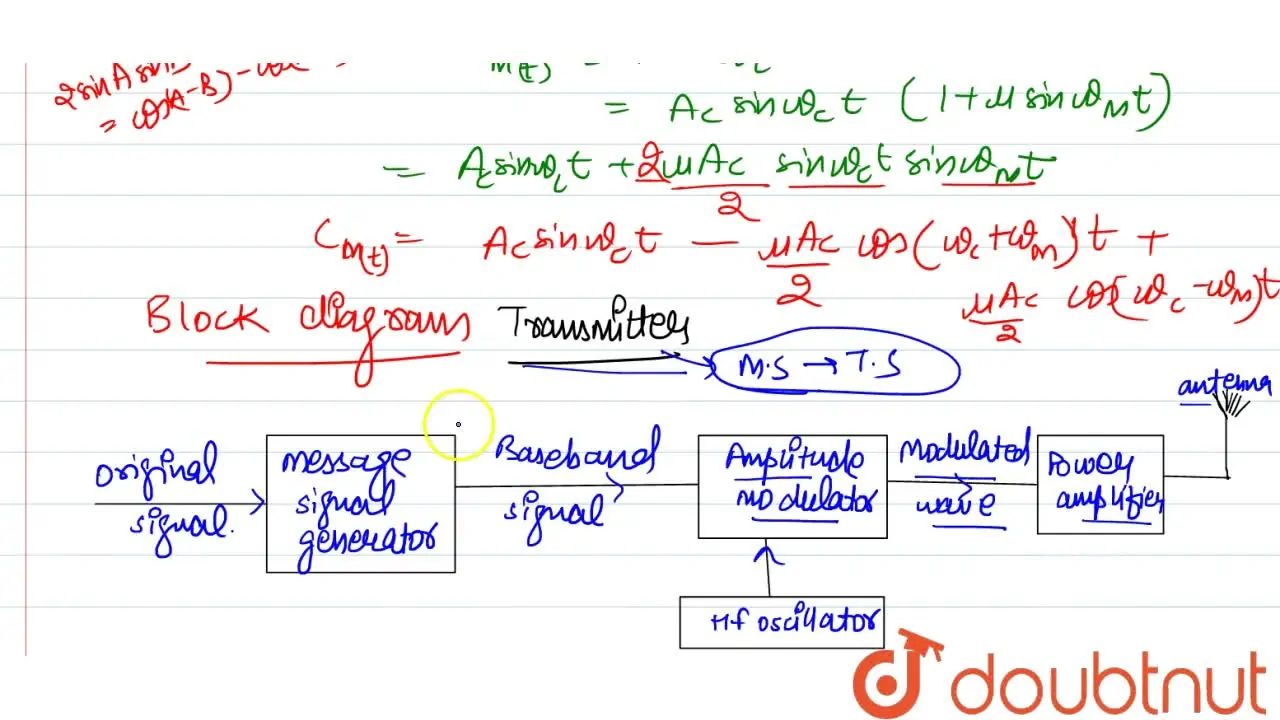 2 sin A sin B
= cos(A-B) - cos
m(t) =
= Ac sin ωc t (1 + μ sin ωm t)
= Ac sin ωc t + 2μAc/2 sin ωc t sin ωm t
Cm(t) = Ac sin ωc t − μAc/2 cos(ωc + ωm)t +
μAc/2 cos(ωc − ωm)t
Block diagrams Transmitters
M.S → T.S
antenna
original
signal.
message
signal
generator
Baseband
signal
Amplitude
modulator
Modulated
wave
Power
amplifier
Hf oscillator
doubtnut